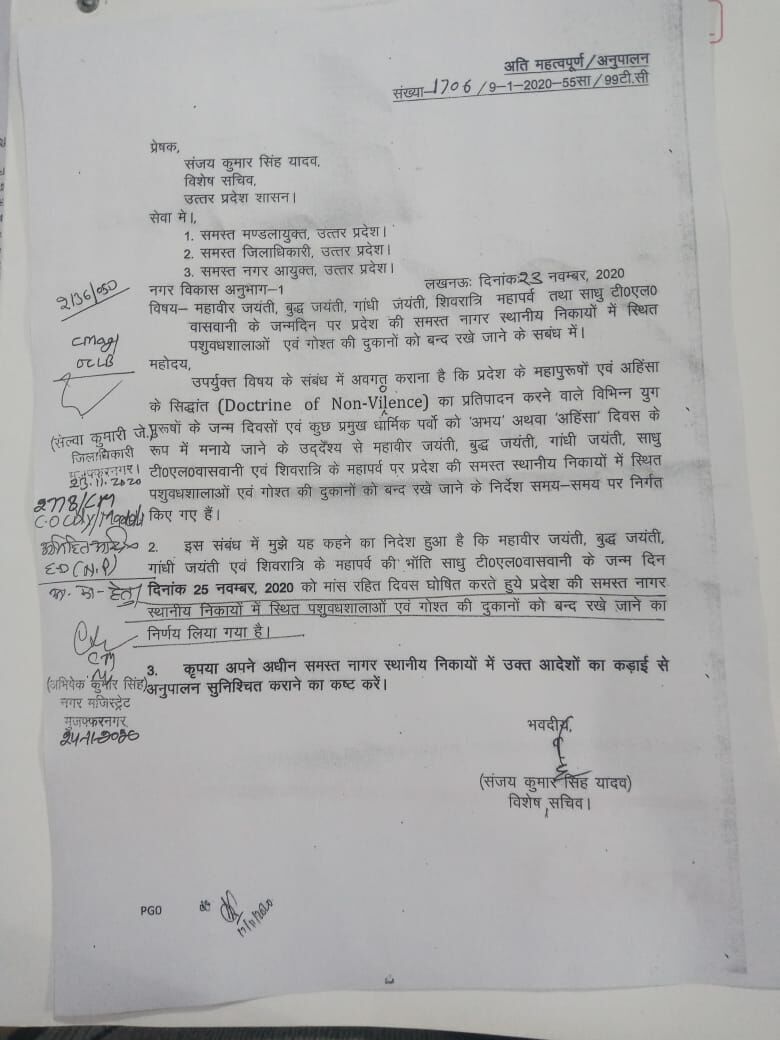 अति महत्वपूर्ण/अनुपालन
संख्या-1706/9-1-2020-55सा/99टी.सी
प्रेषक,
संजय कुमार सिंह यादव,
विशेष सचिव,
उत्तर प्रदेश शासन।
सेवा में।,
1. समस्त मण्डलायुक्त, उत्तर प्रदेश।
2. समस्त जिलाधिकारी, उत्तर प्रदेश।
3. समस्त नगर आयुक्त, उत्तर प्रदेश।
नगर विकास अनुभाग-1
लखनऊः दिनांक 23 नवम्बर, 2020
विषय- महावीर जयंती, बुद्ध जयंती, गांधी जयंती, शिवरात्रि महापर्व तथा साधु टी0एल0
वासवानी के जन्मदिन पर प्रदेश की समस्त नागर स्थानीय निकायों में स्थित
पशुवधशालाओं एवं गोश्त की दुकानों को बन्द रखे जाने के सबंध में।
महोदय,
उपर्युक्त विषय के संबंध में अवगत कराना है कि प्रदेश के महापुरूषों एवं अहिंसा
के सिद्धांत (Doctrine of Non-Vilence) का प्रतिपादन करने वाले विभिन्न युग
पुरूषों के जन्म दिवसों एवं कुछ प्रमुख धार्मिक पर्वो को 'अभय' अथवा 'अहिंसा' दिवस के
रूप में मनाये जाने के उद्देश्य से महावीर जयंती, बुद्ध जयंती, गांधी जयंती, साधु
टी0एल0वासवानी एवं शिवरात्रि के महापर्व पर प्रदेश की समस्त स्थानीय निकायों में स्थित
पशुवधशालाओं एवं गोश्त की दुकानों को बन्द रखे जाने के निर्देश समय-समय पर निर्गत
किए गए हैं।
2. इस संबंध में मुझे यह कहने का निदेश हुआ है कि महावीर जयंती, बुद्ध जयंती,
गांधी जयंती एवं शिवरात्रि के महापर्व की भॉति साधु टी0एल0वासवानी के जन्म दिन
दिनांक 25 नवम्बर, 2020 को मांस रहित दिवस घोषित करते हुये प्रदेश की समस्त नागर
स्थानीय निकायों में स्थित पशुवधशालाओं एवं गोश्त की दुकानों को बन्द रखे जाने का
निर्णय लिया गया है।
3. कृपया अपने अधीन समस्त नागर स्थानीय निकायों में उक्त आदेशों का कड़ाई से
अनुपालन सुनिश्चित कराने का कष्ट करें।
भवदीय,
(संजय कुमार सिंह यादव)
विशेष सचिव।
(सेल्वा कुमारी जे.)
जिलाधिकारी
मुजफ्फरनगर।
23.11.2020
2778/CM
E.O (N.P)
हेतु
CM
(अभिषेक कुमार सिंह)
नगर मजिस्ट्रेट
मुजफ्फरनगर
24-11-2020
PGO